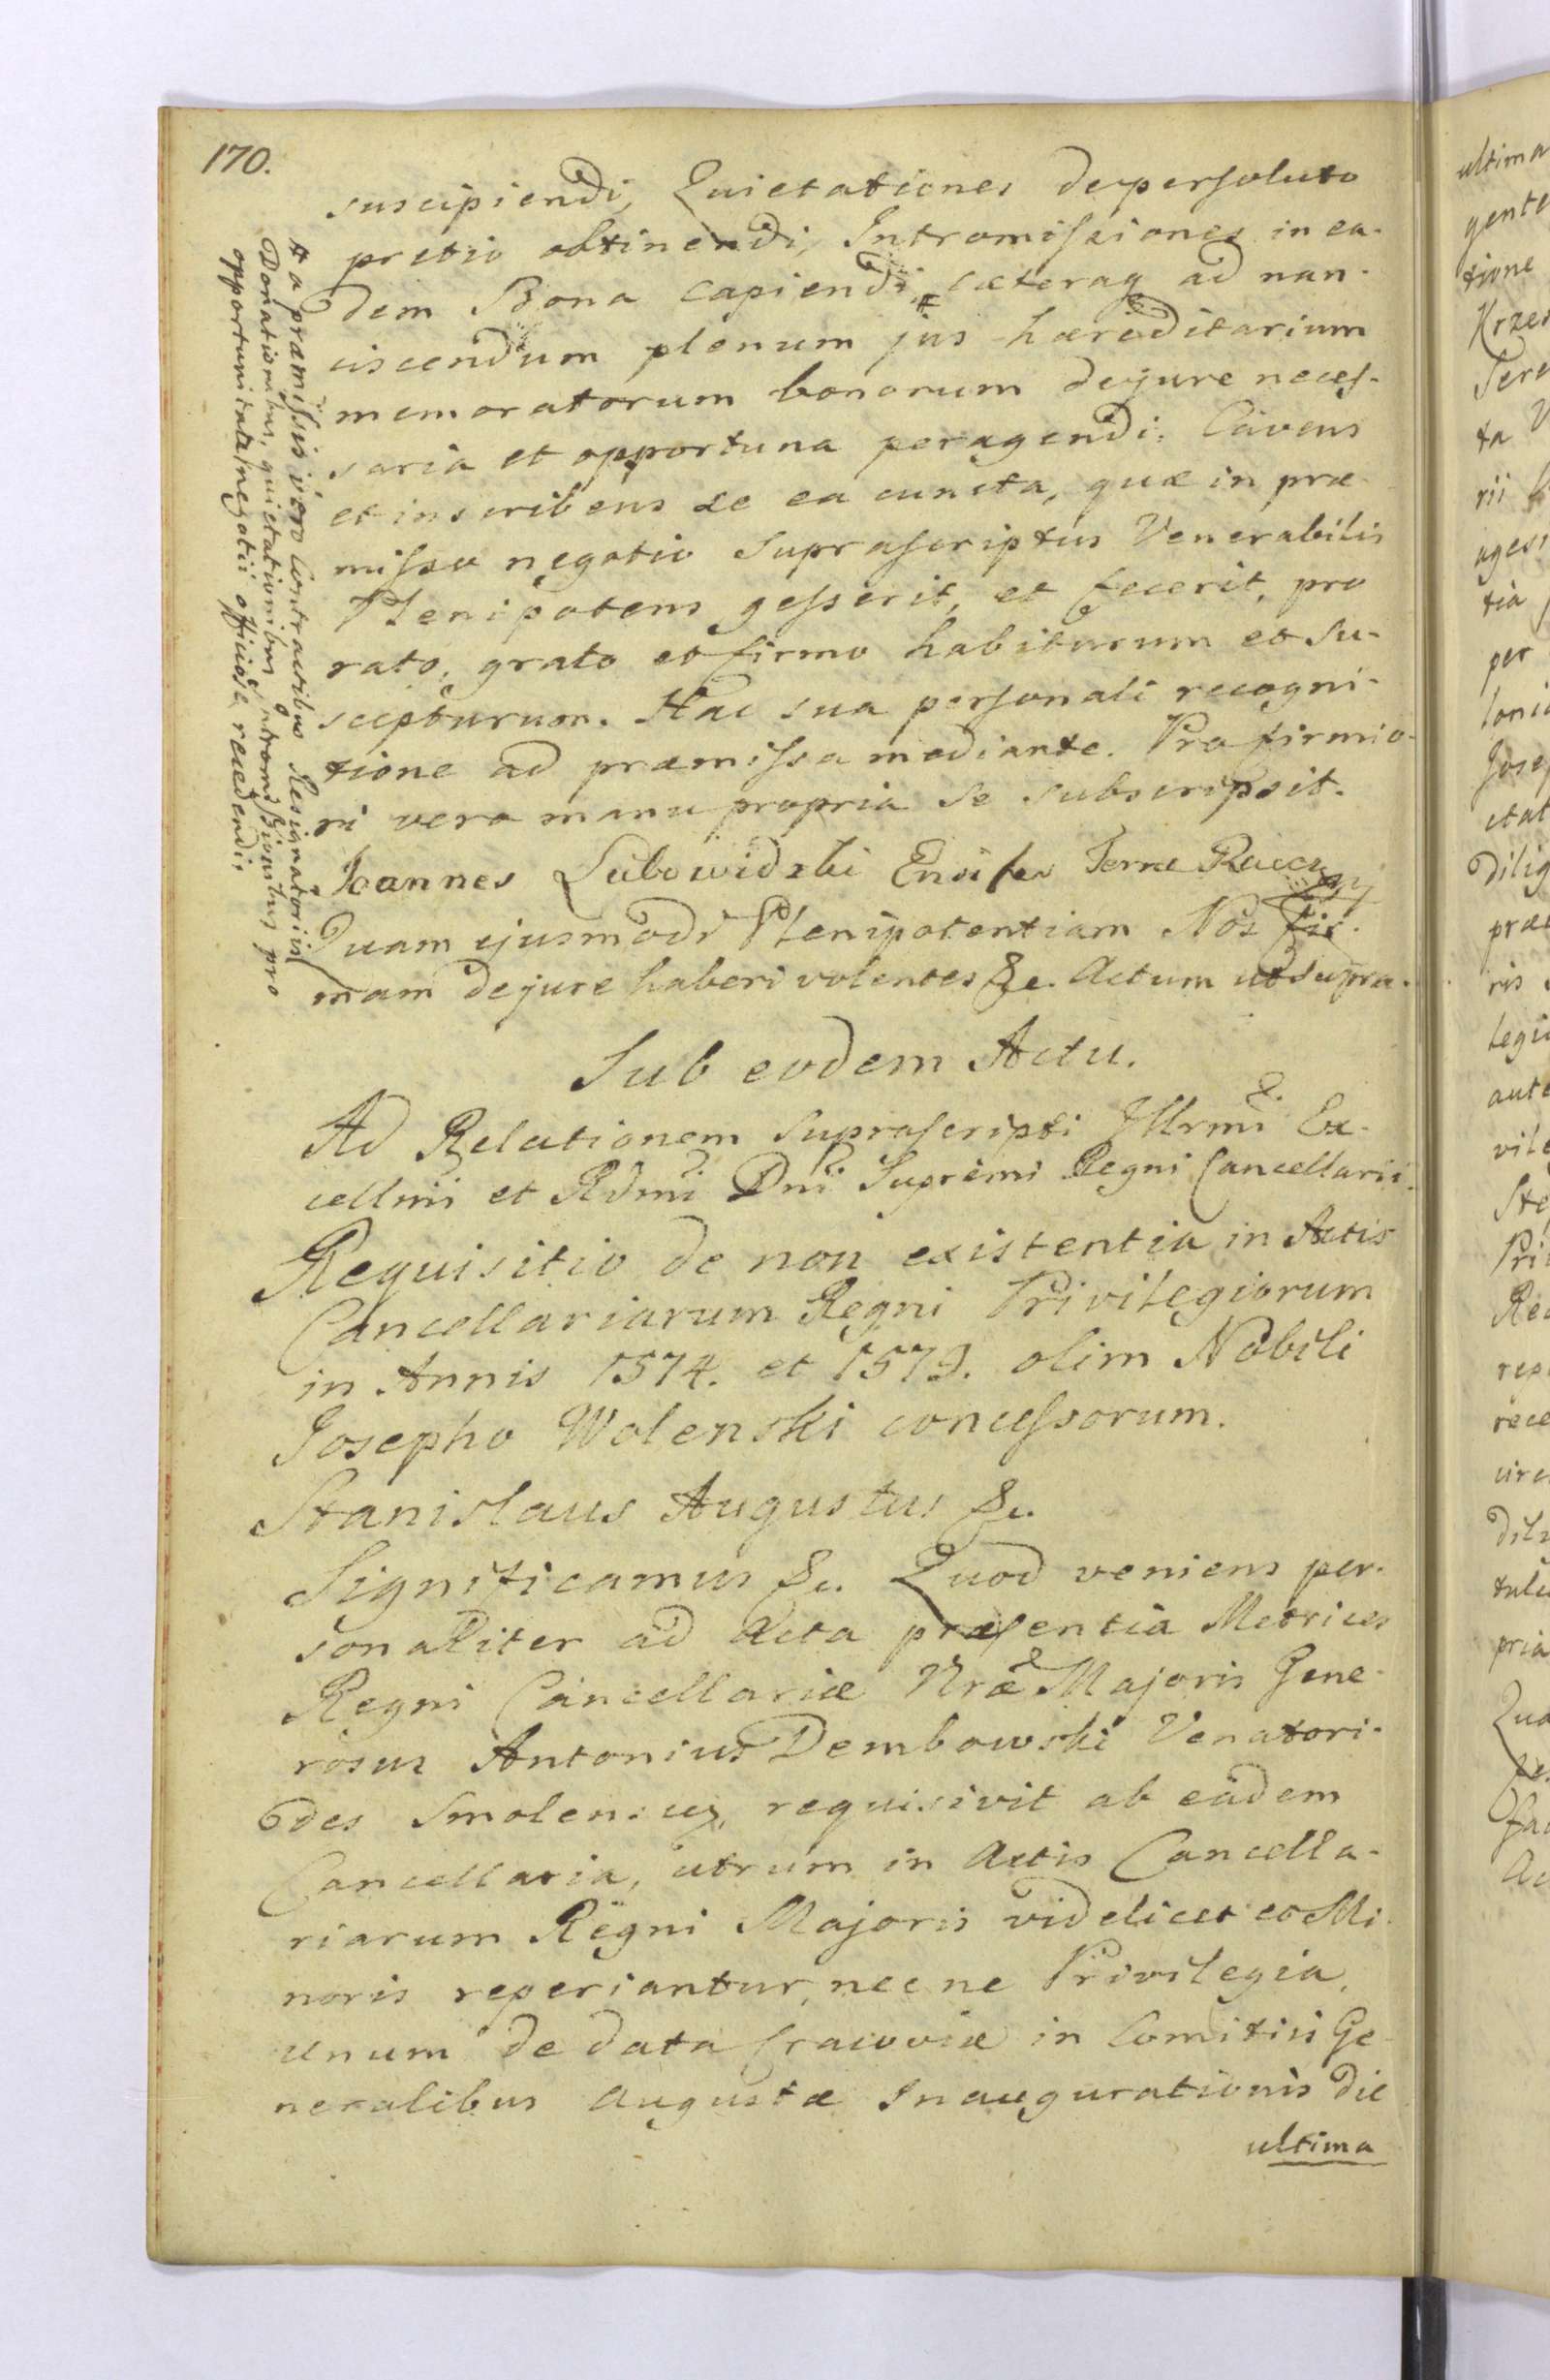 170.
suscipiendi, Quietationes de persoluto
pretio obtinendi, Intromissiones in ea-
dem Bona capiendi, # cæteraq ad nan-
ciscendum plenum jus hæreditarium
memoratorum bonorum de jure neces-
saria et opportuna peragendi: Cavens
et inscribens se ea cuncta, quæ in præ-
misso negotio suprascriptus Venerabilis
Plenipotens gesserit, et fecerit, pro
rato, grato et firmo habiturum et su-
scepturum. Hac sua personali recogni-
tione ad præmissa mediante. Pro firmio-
ri vero manu propria se subscripsit.
Joannes Lubowidzki Ensifer Terræ
Quam ejusmodi Plenipotentiam Nos fir-
mam de jure haberi volentes &c. Actum ut supra.
# a præmissis vero Contractibus Resignatoriis
Donationibus, quietationibus, intromissionibus pro
opportunitate negotii officiose recedendi,
Sub eodem Actu.
Ad Relationem suprascripti Illrmi Ex-
cellmi et Rdmi Dni Supremi Regni Cancellarii.
Requisitio de non existentia in Actis
Cancellariarum Regni Privilegiorum
in Annis 1574. et 1579. olim Nobili
Josepho Wolenski concessorum.
Stanislaus Augustus &c.
Significamus &c. Quod veniens per-
sonaliter ad Acta præsentia Metrices
Regni Cancellariæ Nræ Majoris Gene-
rosus Antonius Dembowski Venatori-
des Smolenscen, requisivit ab eadem
Cancellaria, utrum in Actis Cancella-
riarum Regni Majoris videlicet et Mi-
noris reperiantur, nec ne Privilegia,
unum de data Cracoviæ in Comitiis Ge-
neralibus Augustæ Inaugurationis die
ultima